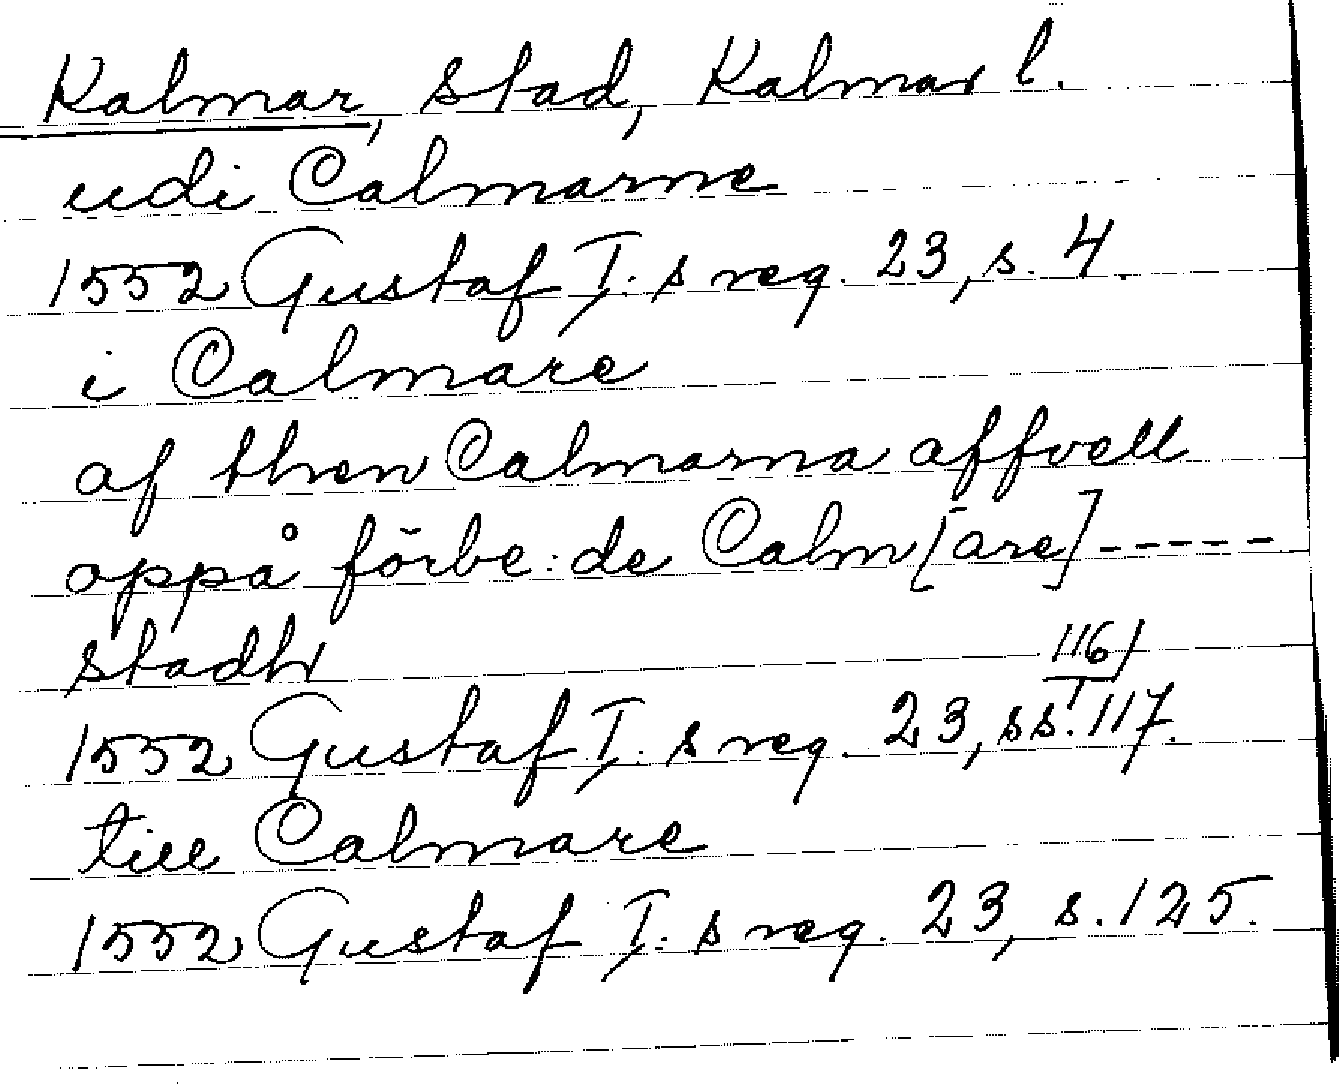 Kalmar, stad, Kalmar l.
udi Calmarne
1552 Gustaf I:s reg. 23, s. 4.
i Calmare
af then Calmarna affvell
oppå förbe:de Calm[are]-----
stadh
1552 Gustaf I:s reg. 23, ss. 116, 117.
till Calmare
1552 Gustaf I:s reg. 23, s. 125.